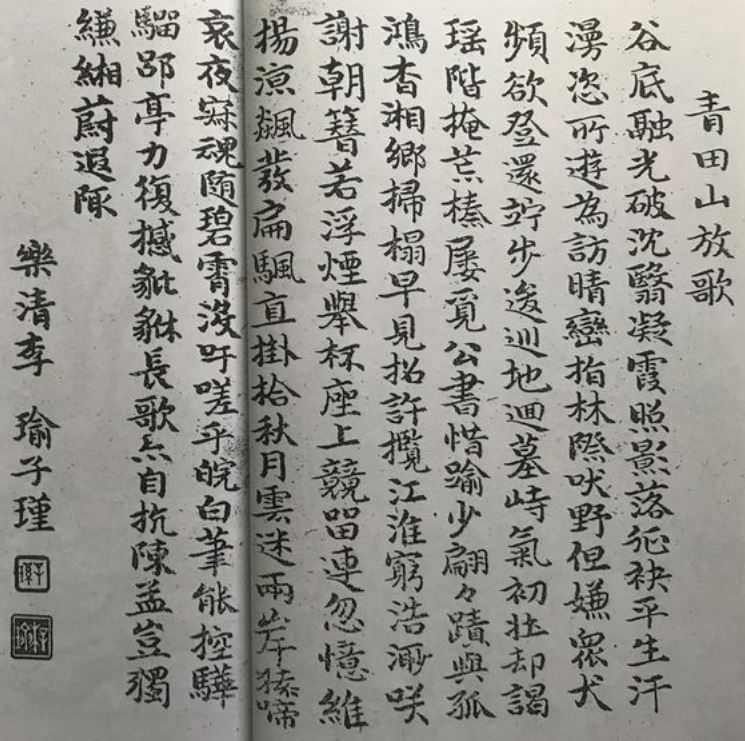 青田山放歌
谷底融光破沈翳凝霞照影落征袂平生汗
漫恣所遊為訪晴巒指林際吠野但嫌眾犬
頻欲登還竚步逡巡地迴墓峙氣初壯却謁
瑶階掩荒榛屢覓公書惜踰少翩々蹟與孤
鴻杳湘鄉掃榻早見招許攬江淮窮浩渺咲
謝朝簪若浮煙舉杯座上競留連忽憶維
揚涼飆發扁颿直掛拾秋月雲迷兩岸猿啼
哀夜寐魂随碧霄没吁嗟乎皖白筆能控驊
騮郘亭力復撼貔貅長歌亦自抗陳豈獨
縑緗蔚遐陬
樂清李瑜子瑾